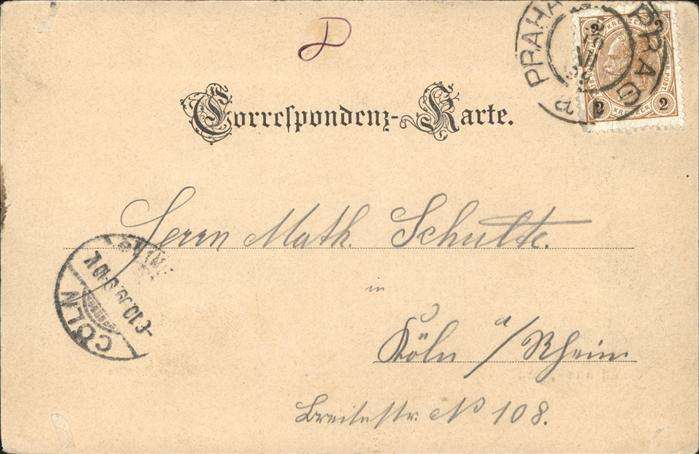 D
PRAHA
PRAG
2 2
Correspondenz-Karte.
Herrn Math. Schulte.
in
Köln a/Rhein
Breitestr. No 108.
CÖLN